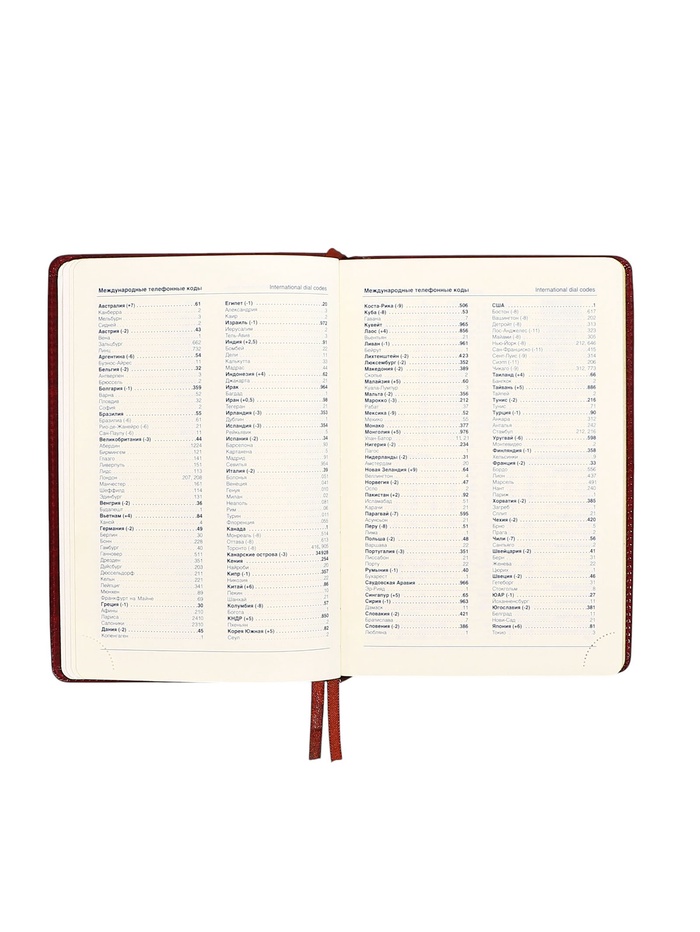 Международные телефонные коды International dial codes
Австралия (+7) 61
Канберра 2
Мельбурн 3
Сидней 2
Австрия (-2) 43
Вена 1
Зальцбург 662
Линц 732
Аргентина (-6) 54
Буэнос-Айрес 11
Бельгия (-2) 32
Антверпен 3
Брюссель 2
Болгария (-1) 359
Варна 52
Пловдив 32
София 2
Бразилия 55
Бразилиа (-6) 61
Рио-де-Жанейро (-6) 21
Сан-Паулу (-6) 11
Великобритания (-3) 44
Абердин 1224
Бирмингем 121
Глазго 141
Ливерпуль 151
Лидс 113
Лондон 207, 208
Манчестер 161
Шеффилд 114
Эдинбург 131
Венгрия (-2) 36
Будапешт 1
Вьетнам (+4) 84
Ханой 4
Германия (-2) 49
Берлин 30
Бонн 228
Гамбург 40
Ганновер 511
Дрезден 351
Дуйсбург 203
Дюссельдорф 211
Кельн 221
Лейпциг 341
Мюнхен 89
Франкфурт на Майне 69
Греция (-1) 30
Афины 210
Лариса 2410
Салоники 2310
Дания (-2) 45
Копенгаген
Египет (-1) 20
Александрия 3
Каир 2
Израиль (-1) 972
Иерусалим 2
Тель-Авив 3
Индия (+2,5) 91
Бомбей 22
Дели 11
Калькутта 33
Мадрас 44
Индонезия (+4) 62
Джакарта 21
Ирак 964
Багдад 1
Иран (+0,5) 98
Тегеран 21
Ирландия (-3) 353
Дублин 1
Исландия (-3) 354
Рейкьявик
Испания (-2) 34
Барселона
Картахена
Мадрид
Севилья
Италия (-2) 39
Болонья 051
Венеция 041
Генуя 010
Милан 02
Неаполь 081
Рим 06
Турин 011
Флоренция 055
Канада 1
Монреаль (-8) 514
Оттава (-8) 613
Торонто (-8) 416, 905
Канарские острова (-3) 34928
Кения 254
Найроби 20
Кипр (-1) 357
Никозия 22
Китай (+5) 86
Пекин 10
Шанхай 21
Колумбия (-8) 57
Богота 1
КНДР (+5) 850
Пхеньян 2
Корея Южная (+5) 82
Сеул 2
Международные телефонные коды International dial codes
Коста-Рика (-9) 506
Куба (-8) 53
Гавана 7
Кувейт 965
Лаос (+4) 856
Вьентьян 21
Ливан (-1) 961
Бейрут 1
Лихтенштейн (-2) 423
Люксембург (-2) 352
Македония (-2) 389
Скопье 2
Малайзия (+5) 60
Куала-Лумпур 3
Мальта (-2) 356
Марокко (-3) 212
Рабат
Мексика (-9) 52
Мехико 55
Монако 377
Монголия (+5) 976
Улан-Батор 11, 21
Нигерия (-2) 234
Лагос 1
Нидерланды (-2) 31
Амстердам 20
Новая Зеландия (+9) 64
Веллингтон 4
Норвегия (-2) 47
Осло 2
Пакистан (+2) 92
Исламабад 51
Карачи 21
Парагвай (-7) 595
Асунсьон 21
Перу (-8) 51
Лима 1
Польша (-2) 48
Варшава 22
Португалия (-3) 351
Лиссабон 21
Порту 22
Румыния (-1) 40
Бухарест 1
Саудовская Аравия 966
Эр-Рияд 1
Сингапур (+5) 65
Сирия (-1) 963
Дамаск 11
Словакия (-2) 421
Братислава 7
Словения (-2) 386
Любляна 1
США 1
Бостон (-8) 617
Вашингтон (-8) 202
Детройт (-8) 313
Лос-Анджелес (-11) 323
Майами (-8) 305
Нью-Йорк (-8) 212, 646
Сан-Франциско (-11) 415
Сент-Луис (-9) 314
Сиэтл (-11) 206
Чикаго (-9) 312, 773
Таиланд (+4) 66
Бангкок 2
Тайвань (+5) 886
Тайпей 2
Тунис (-2) 216
Тунис
Турция (-1) 90
Анкара 312
Анталья 242
Стамбул 212, 216
Уругвай (-6) 598
Монтевидео 2
Финляндия (-1) 358
Хельсинки 9
Франция (-2) 33
Бордо 556
Лион 437
Марсель 491
Нант 240
Париж
Хорватия (-2) 385
Загреб 1
Сплит 21
Чехия (-2) 420
Брно 5
Прага 2
Чили (-7) 56
Сантьяго 2
Швейцария (-2) 41
Берн 31
Женева 22
Цюрих 1
Швеция (-2) 46
Гетеборг 31
Стокгольм 8
ЮАР (-1) 27
Йоханнесбург 11
Югославия (-2) 381
Белград 11
Нови-Сад 21
Япония (+6) 81
Токио 3